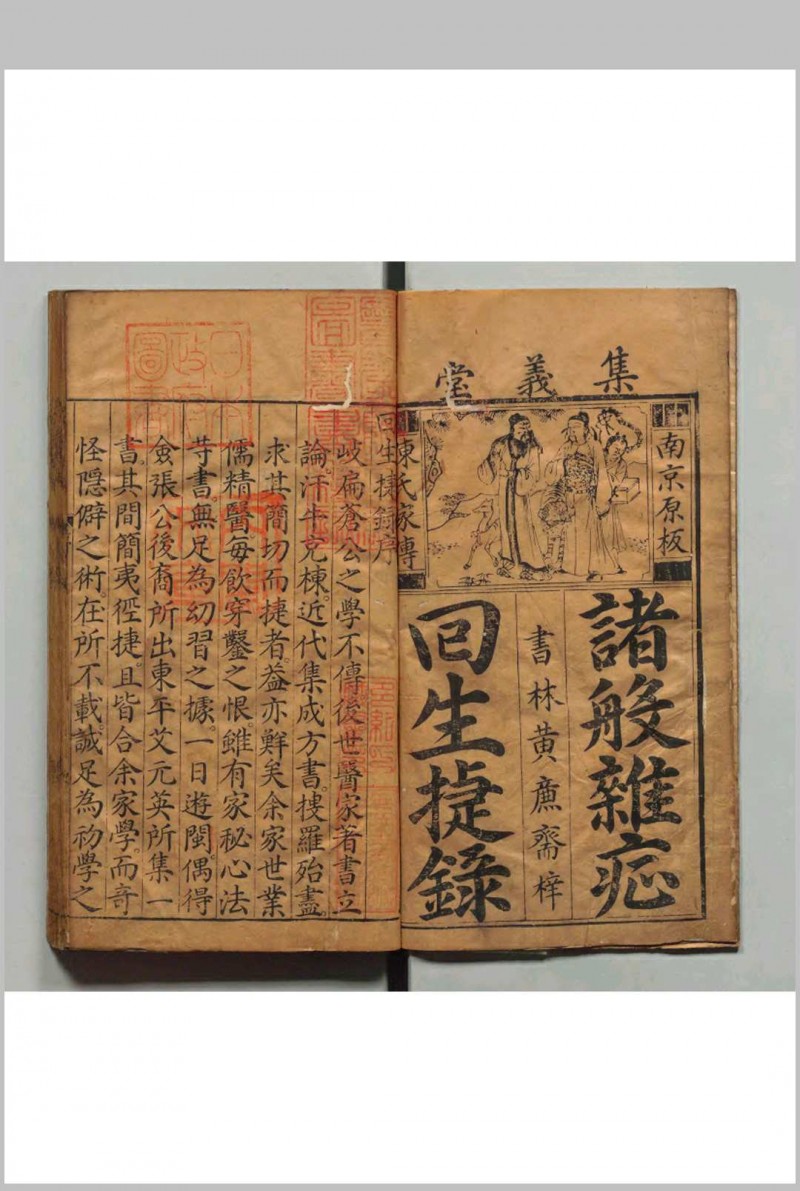 集義堂
南京原板
諸般雜症
書林黃廉齋梓
回生捷錄
陳氏家傳
回生捷錄序
岐扁蒼公之學不傳後世醫家著書立
論。汗牛充棟。近代集成方書。摟羅殆盡。
求其簡切而捷者。益亦鮮矣余家世業
儒精醫每飲穿鑿之恨雖有家秘心法
等書。無足為幼習之據。一日遊閩。偶得
僉張公後裔所出東平艾元英所集一
書。其間簡夷徑捷。且皆合余家學。而奇
怪隱僻之術。在所不載。誠足為初學之
日本
政府
圖書